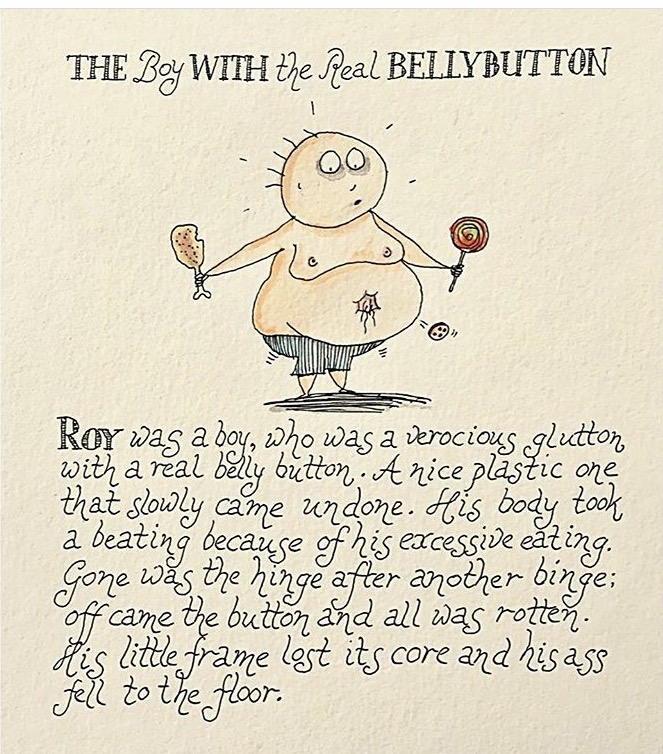 THE Boy WITH the Real BELLYBUTTON
Roy was a boy, who was a verocious glutton
with a real belly button. A nice plastic one
that slowly came undone. His body took
a beating because of his excessive eating.
Gone was the hinge after another binge;
off came the button and all was rotten.
His little frame lost its core and his ass
fell to the floor.